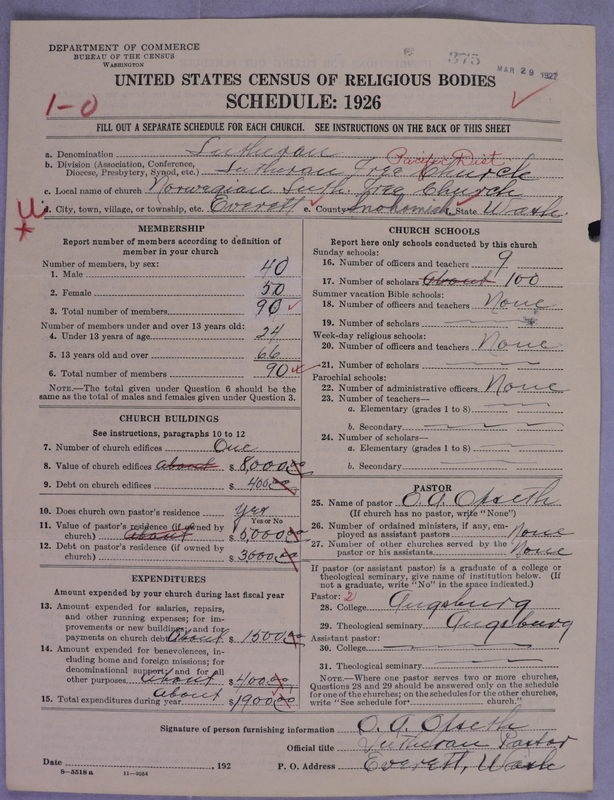 DEPARTMENT OF COMMERCE
BUREAU OF THE CENSUS
WASHINGTON
375
MAR 29 1927
UNITED STATES CENSUS OF RELIGIOUS BODIES
SCHEDULE: 1926
1-0
FILL OUT A SEPARATE SCHEDULE FOR EACH CHURCH. SEE INSTRUCTIONS ON THE BACK OF THIS SHEET
a. Denomination Lutheran
Pacific Dist
b. Division (Association, Conference, Diocese, Presbytery, Synod, etc.) Lutheran Free Church
c. Local name of church Norwegian Luth. Free Church
d. City, town, village, or township, etc. Everett e. County Snohomish State Wash.
MEMBERSHIP
Report number of members according to definition of
member in your church
Number of members, by sex:
1. Male 40
2. Female 50
3. Total number of members 90
Number of members under and over 13 years old:
4. Under 13 years of age 24
5. 13 years old and over 66
6. Total number of members 90
NOTE.—The total given under Question 6 should be
same as the total of males and females given under Question 3.
CHURCH BUILDINGS
See instructions, paragraphs 10 to 12
7. Number of church edifices One
8. Value of church edifices About $ 8,000.00
9. Debt on church edifices $ 400.00
10. Does church own pastor's residence Yes
Yes or No
11. Value of pastor's residence (if owned by
church) About $ 5,000.00
12. Debt on pastor's residence (if owned by
church) $ 3,000.00
EXPENDITURES
Amount expended by your church during last fiscal year
13. Amount expended for salaries, repairs,
and other running expenses; for im-
provements or new buildings; and for
payments on church debt About $ 1500.00
14. Amount expended for benevolences, in-
cluding home and foreign missions; for
denominational support; and for all
other purposes About $ 400.00
15. Total expenditures during year About $ 1900.00
CHURCH SCHOOLS
Report here only schools conducted by this church
Sunday schools:
16. Number of officers and teachers 9
17. Number of scholars About 100
Summer vacation Bible schools:
18. Number of officers and teachers None
19. Number of scholars
Week-day religious schools:
20. Number of officers and teachers None
21. Number of scholars
Parochial schools:
22. Number of administrative officers None
23. Number of teachers—
a. Elementary (grades 1 to 8)
b. Secondary
24. Number of scholars—
a. Elementary (grades 1 to 8)
b. Secondary
PASTOR
25. Name of pastor O. A. Opseth
(If church has no pastor, write "None")
26. Number of ordained ministers, if any, em-
ployed as assistant pastors None
27. Number of other churches served by the
pastor or his assistants None
If pastor (or assistant pastor) is a graduate of a college or
theological seminary, give name of institution below. (If
not a graduate, write "No" in the space indicated.)
Pastor: 2
28. College Augsburg
29. Theological seminary Augsburg
Assistant pastor:
30. College
31. Theological seminary
NOTE.—Where one pastor serves two or more churches,
Questions 28 and 29 should be answered only on the schedule
for one of the churches; on the schedules for the other churches,
write "See schedule for church."
Signature of person furnishing information O. A. Opseth
Official title Lutheran Pastor
Date , 192 P. O. Address Everett, Wash
8-5518a 11-9554